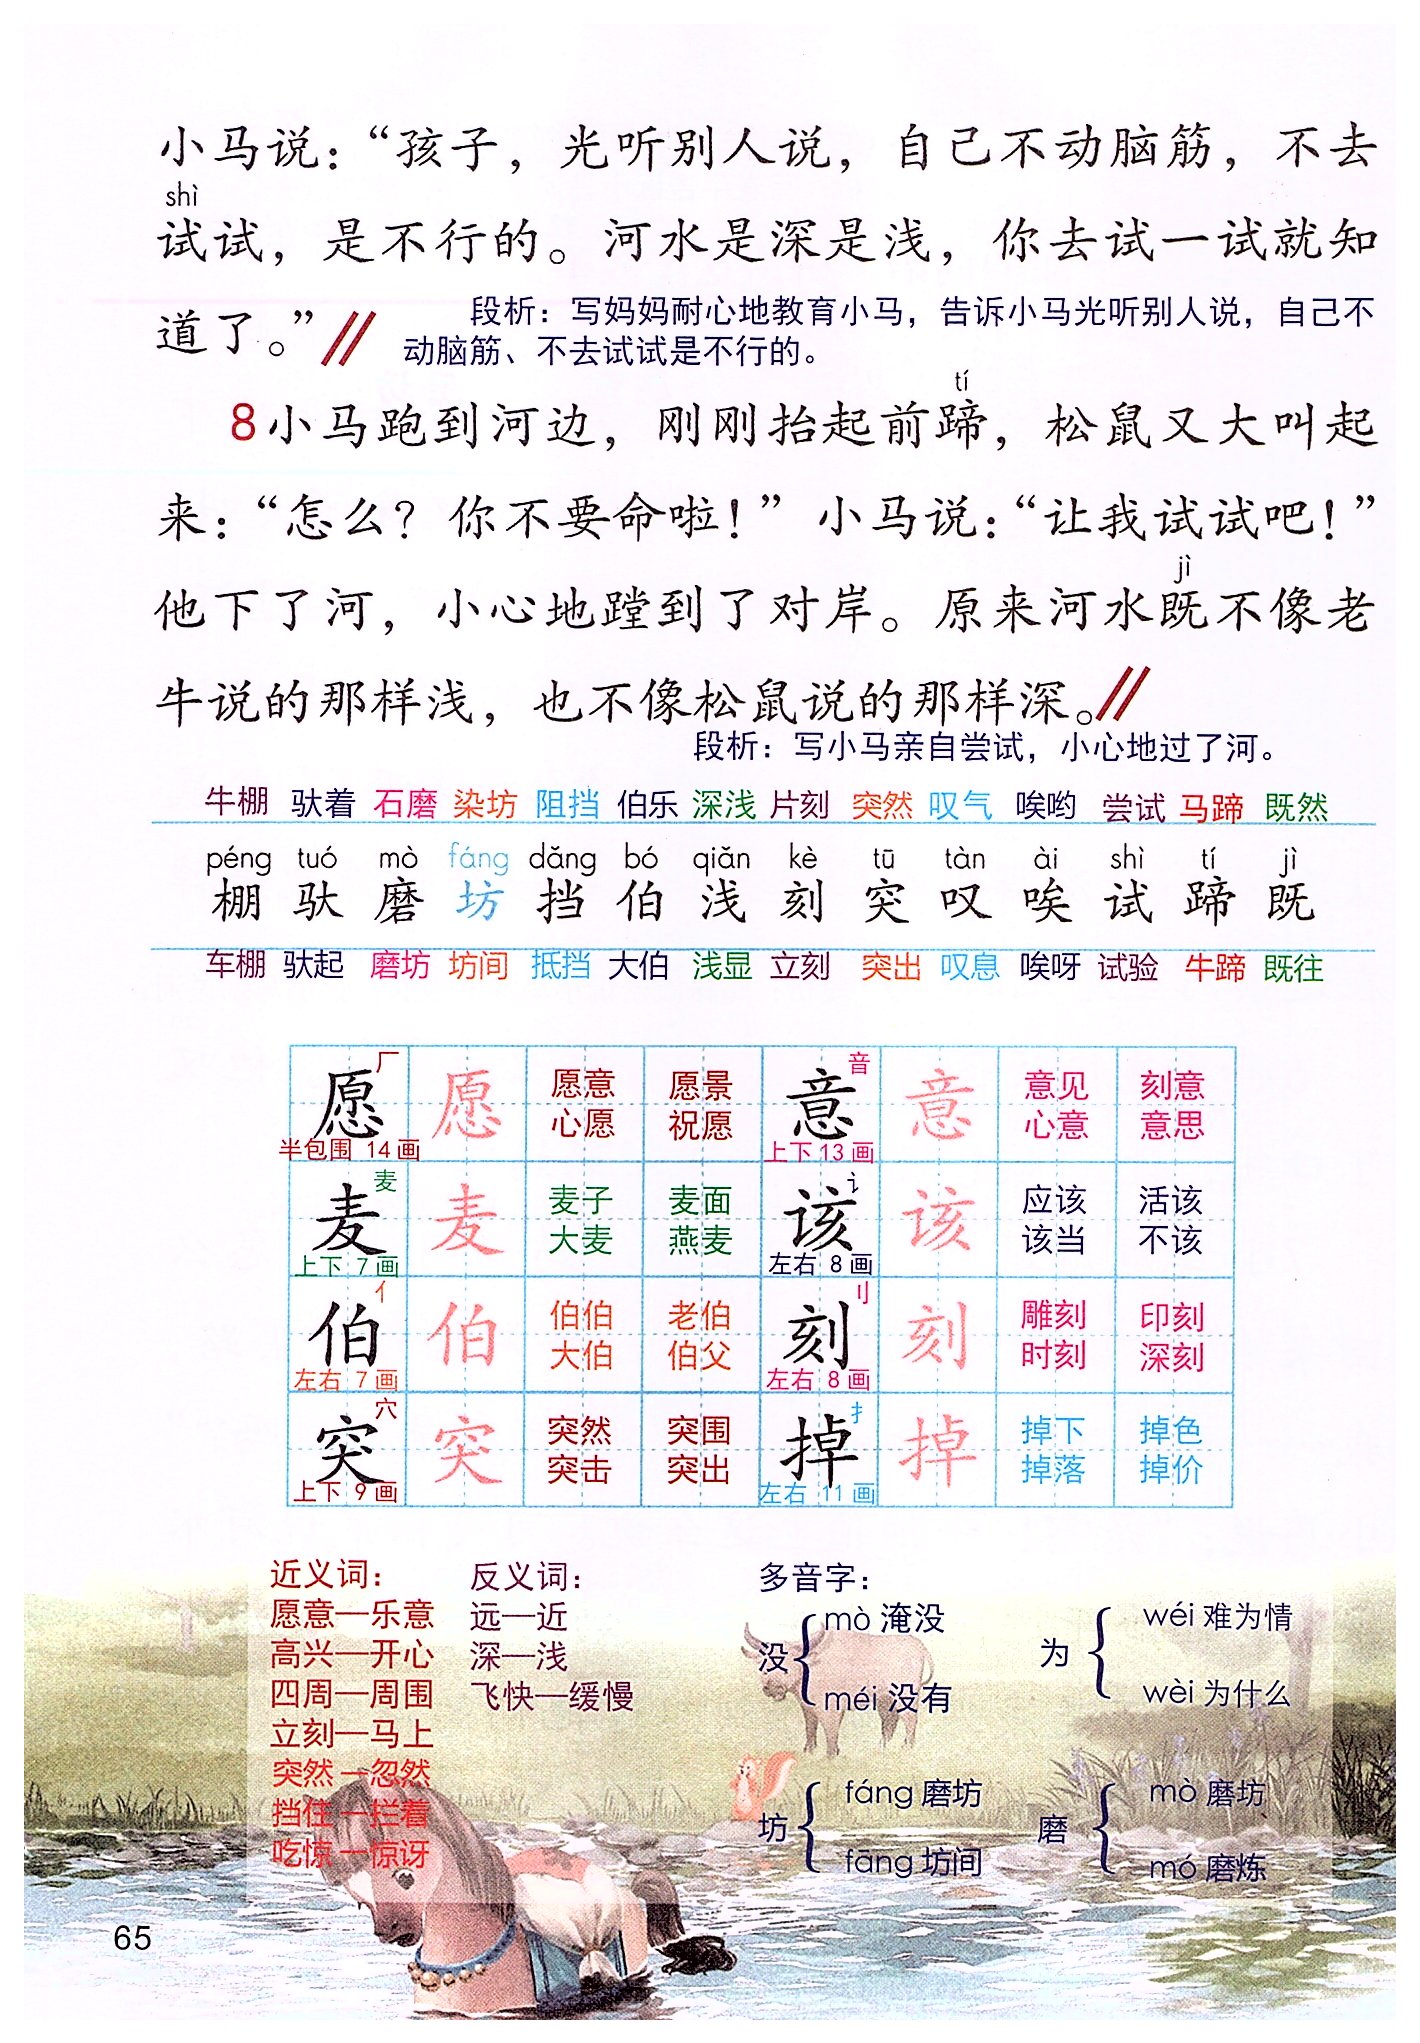 小马说：“孩子，光听别人说，自己不动脑筋，不去
shì
试试，是不行的。河水是深是浅，你去试一试就知
道了。”
段析：写妈妈耐心地教育小马，告诉小马光听别人说，自己不
动脑筋、不去试试是不行的。
tí
8小马跑到河边，刚刚抬起前蹄，松鼠又大叫起
来：“怎么？你不要命啦！”小马说：“让我试试吧！”
jì
他下了河，小心地蹚到了对岸。原来河水既不像老
牛说的那样浅，也不像松鼠说的那样深。
段析：写小马亲自尝试，小心地过了河。
牛棚 驮着 石磨 染坊 阻挡 伯乐 深浅 片刻 突然 叹气 唉哟 尝试 马蹄 既然
péng tuó mò fáng dǎng bó qiǎn kè tū tàn ài shì tí jì
棚 驮 磨 坊 挡 伯 浅 刻 突 叹 唉 试 蹄 既
车棚 驮起 磨坊 坊间 抵挡 大伯 浅显 立刻 突出 叹息 唉呀 试验 牛蹄 既往
厂 音
愿 愿 愿意 愿景 意 意 意见 刻意
心愿 祝愿 心意 意思
半包围 14画 上下 13画
麦 讠
麦 麦 麦子 麦面 该 该 应该 活该
大麦 燕麦 该当 不该
上下 7画 左右 8画
亻 刂
伯 伯 伯伯 老伯 刻 刻 雕刻 印刻
大伯 伯父 时刻 深刻
左右 7画 左右 8画
穴 扌
突 突 突然 突围 掉 掉 掉下 掉色
突击 突出 掉落 掉价
上下 9画 左右 11画
近义词：
愿意—乐意
高兴—开心
四周—周围
立刻—马上
突然—忽然
挡住—拦着
吃惊—惊讶
反义词：
远—近
深—浅
飞快—缓慢
多音字：
mò 淹没
没
méi 没有
wéi 难为情
为
wèi 为什么
fáng 磨坊
坊
fāng 坊间
mò 磨坊
磨
mó 磨炼
65